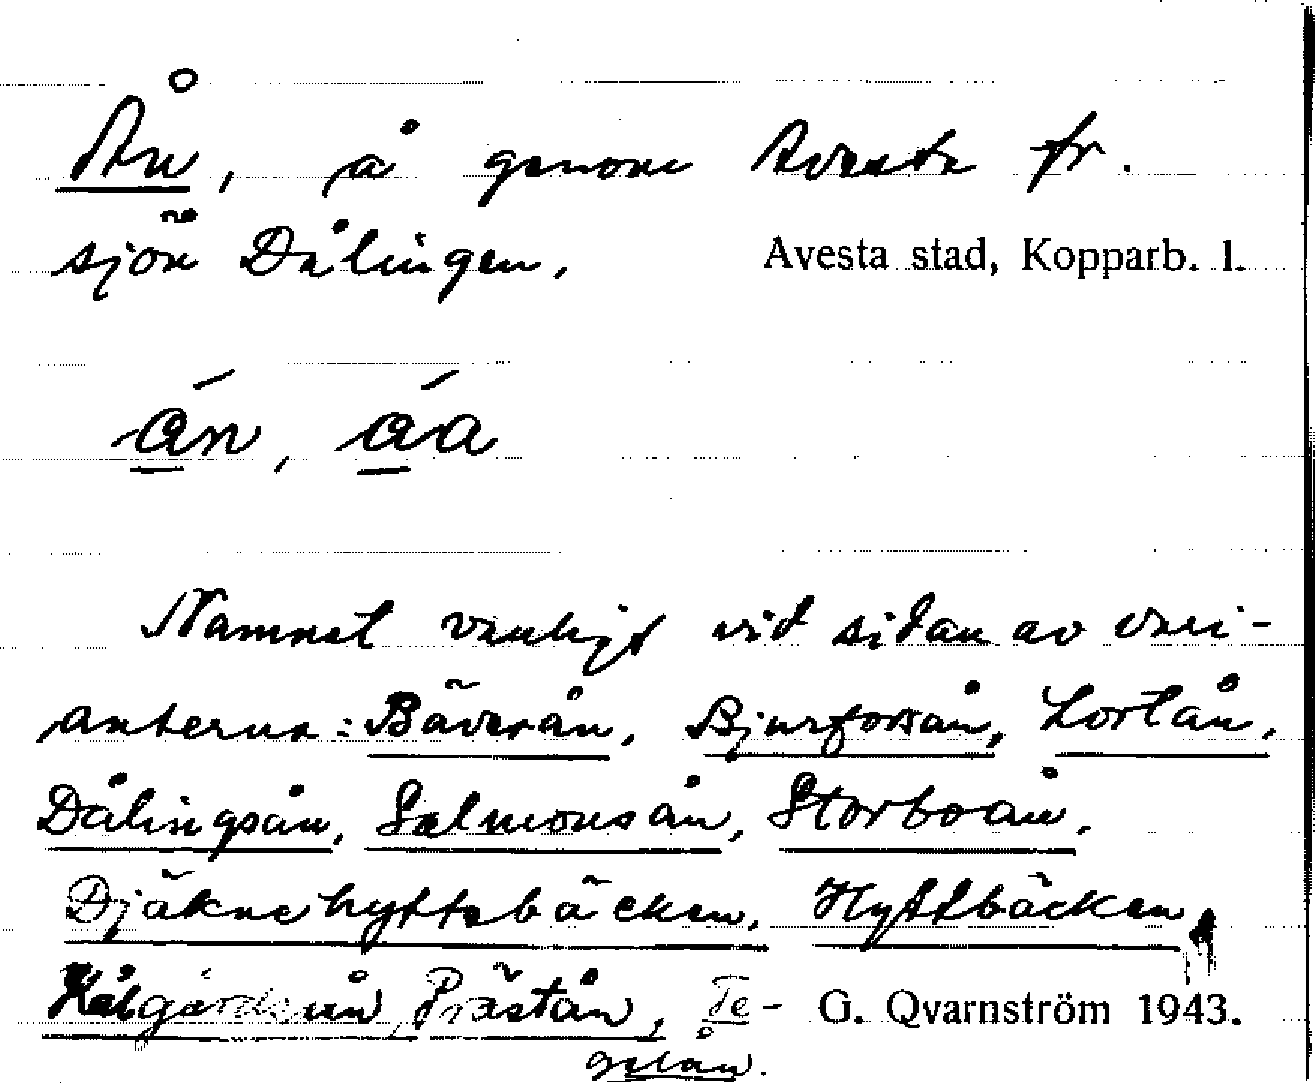 Ån, å genom Avesta fr.
sjön Dålingen. Avesta stad, Kopparb. l.
ǻn, ǻa
Namnet vanligt vid sidan av vari-
anterna: Bäverån, Bjursforsån, Lortån,
Dålingsån, Salmonsån, Storboån,
Djäknehyttebäcken, Hyttbäcken,
Kålgårdsån, Prästån, Te- G. Qvarnström 1943.
gelån.